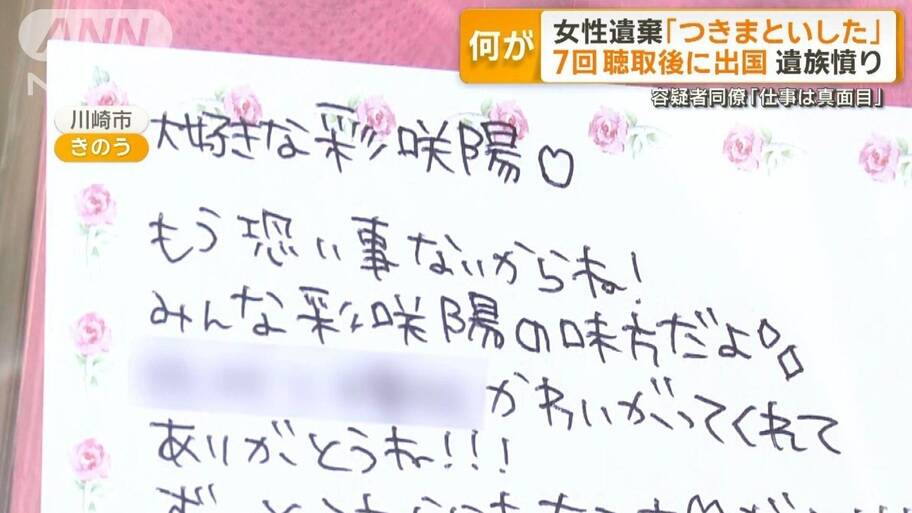 ANN
何が
女性遺棄「つきまといした」
7回 聴取後に出国 遺族憤り
容疑者同僚「仕事は真面目」
川崎市
きのう
大好きな彩咲陽♡
もう恐い事ないからね!
みんな彩咲陽の味方だよ
かわいがってくれて
ありがとうね!!!